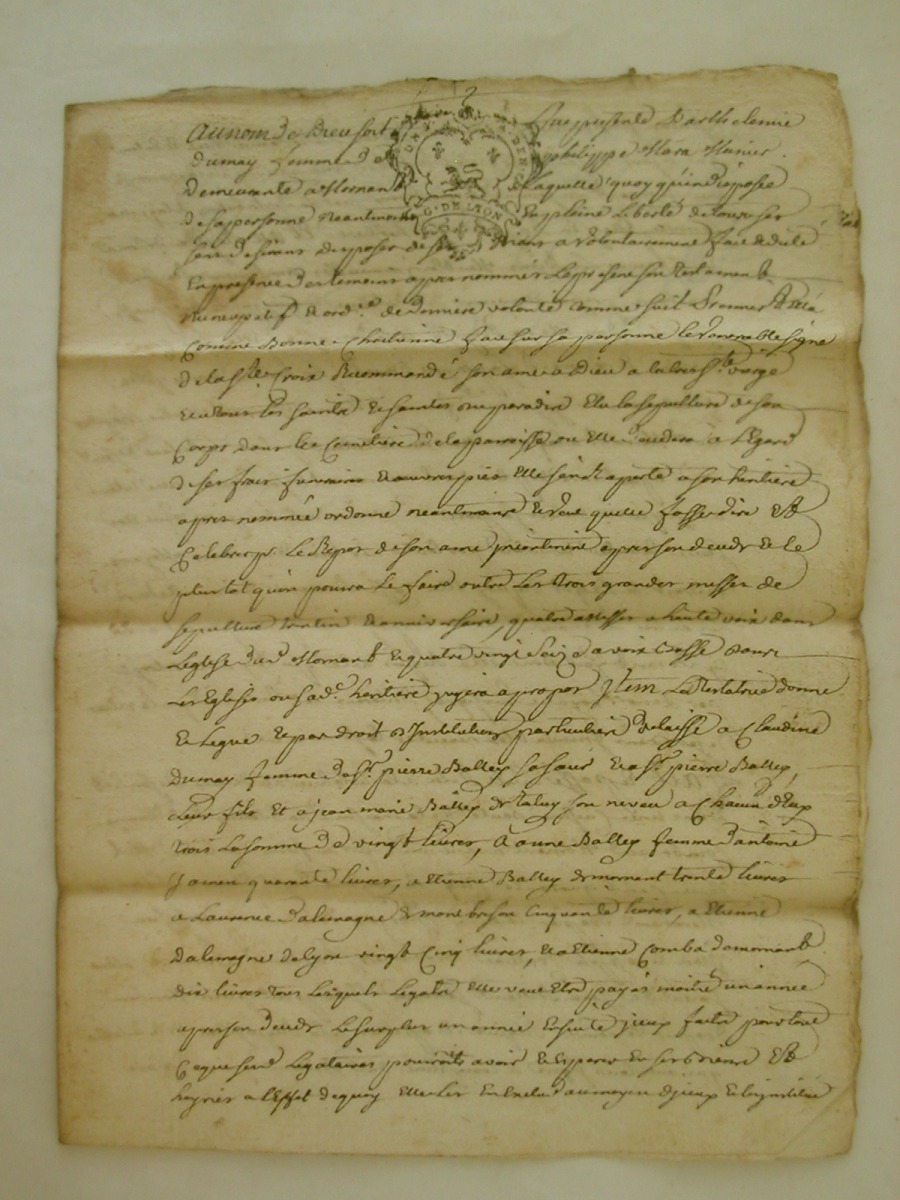 Au nom de Dieu soit
fut presente Barthelemie
Dumay femme de
philippe Mara Munier
Demeurante a Mornant
laquelle quoy qu'indisposée
G. DE LYON
de sa personne neantmoins en pleine liberté de tous ses
sens desirant disposer de ses biens a volontairement fait et dicté
en presence des temoins apres nommés le present son testament
nuncupatif et ord.re de derniere volonté comme suit Premier
comme Bonne Chretienne fait sur sa personne le venerable signe
de la s.te Croix Recommandé son ame a Dieu a la tres s.te vierge
et a tous les saints et saintes du paradis Elu la sepulture de son
Corps dans le Cimetiere de la parroisse ou elle decedera a l'egard
de ses frais funeraires et oeuvres pies elle s'en raporte a son heritiere
apres nommée ordonne neantmoins et veut quelle fasse dire et
Celebrer p.r le Repos de son ame apres son deceds et le
plustot qu'on poura le faire outre les trois grandes messes de
sepulture et anniversaire, quatre Messes a haute voix dans
L'eglise dud. Mornant et quatre vingt seize a voix basse dans
les Eglises ou sad.e heritiere jugera a propos Item La Testatrice donne
et Legue et par droit d'Institution particuliere delaisse a Claudine
Dumay femme de s.r pierre Balley sa soeur et a s.r pierre Balley,
Leur fils Et a jean marie Balley de son neveu a Chacun d'Eux
trois La somme de vingt livres, a anne Balley femme d'antoine
quarante livres, a Etienne Balley de mornant trente livres
a Laurence dalemagne de montbrison Cinquante livres, a Etienne
Dalemagne de lyon vingt Cinq livres, et a Etienne Comba de mornant
dix livres tous lesquels Legats elle veut Etre payés moitié un année
apres son deceds Le surplus un année Ensuite jceux faits pour tout
Ce que sesd. Legataires pouroits avoir et esperer en ses biens et
hoyries a l'effet de quoy elle les Exclud au moyen d'jceux